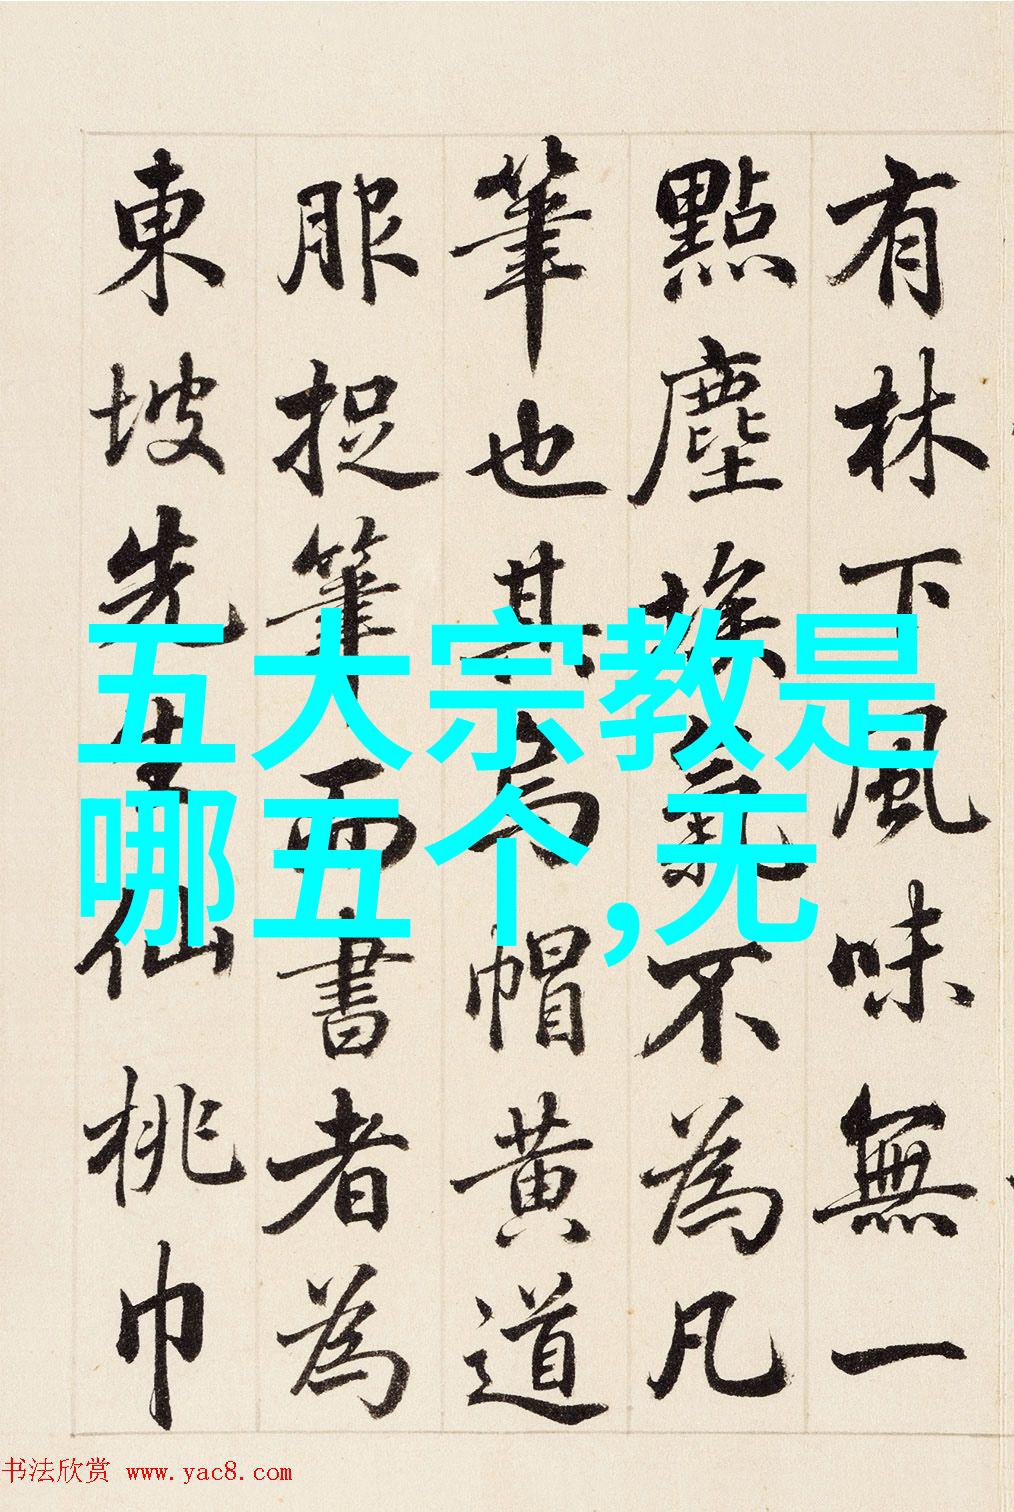 有林下風味無一
點塵埃氣不為凡
筆也其烏帽黃道
服捉筆而書者為
東坡先生仙桃巾
五大宗教是
哪五个,无
书法欣赏 www.yac8.com